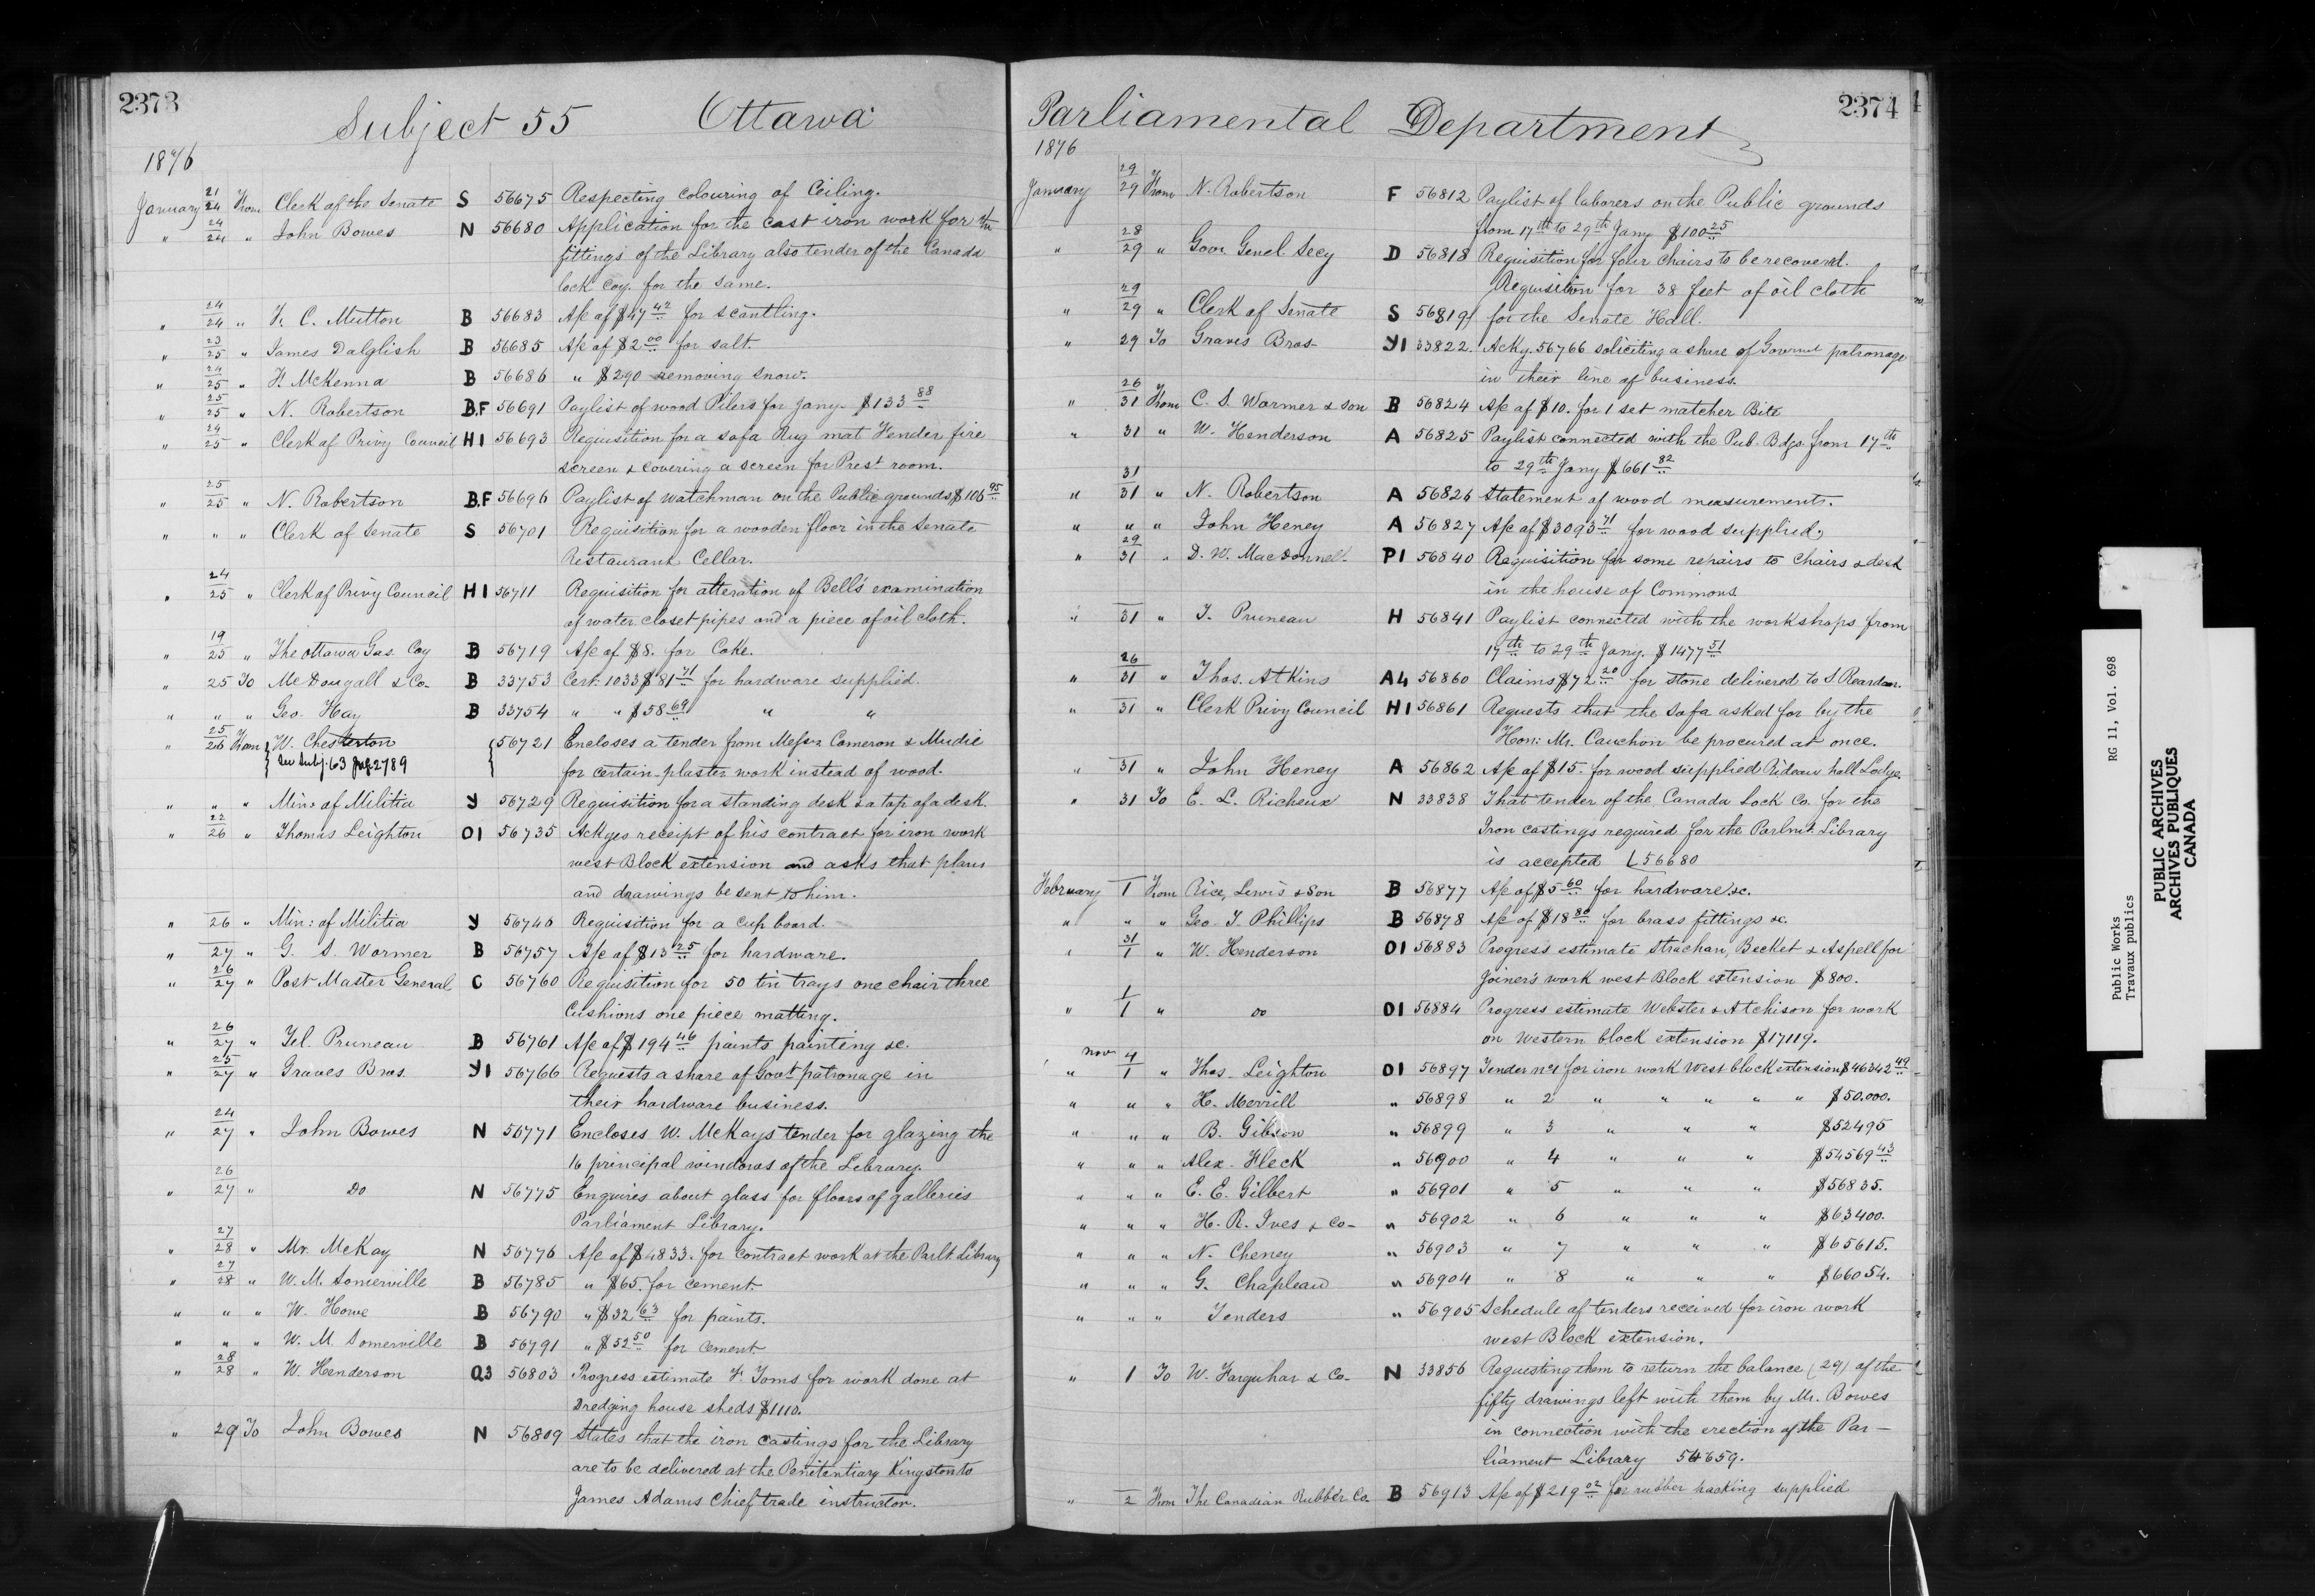 2373
Subject 55 Ottawa
1876
January 21/24 From Clerk of the Senate S 56675 Respecting colouring of Ceiling.
" 24/24 " John Bowes N 56680 Application for the cast iron work for the
fittings of the Library also tender of the Canada
lock coy. for the same.
" 24/24 " F. C. Mutton B 56683 A/c of $47 42 for scantling.
" 23/25 " James Dalglish B 56685 A/c of $2 00 for salt.
" 24/25 " F. McKenna B 56686 " $290 removing snow.
" 25/25 " N. Robertson B.F 56691 Paylist of wood Pilers for Jany. $133 88
" 24/25 " Clerk of Privy Council H1 56693 Requisition for a sofa Rug mat Fender fire
screen & covering a screen for Prest room.
" 25/25 " N. Robertson B.F 56696 Paylist of watchman on the Public grounds $106 95
" " " Clerk of Senate S 56701 Requisition for a wooden floor in the Senate
Restaurant Cellar.
" 24/25 " Clerk of Privy Council H1 56711 Requisition for alteration of Bell's examination
of water closet pipes and a piece of oil cloth.
" 19/25 " The Ottawa Gas Coy B 56719 A/c of $8. for Coke.
" 25 To McDougall & Co- B 33753 Cert. 1033 $81 71 for hardware supplied.
" " " Geo. Hay B 33754 " " $58 69 " "
" 25/26 From W. Chesterton 56721 Encloses a tender from Messrs Cameron & Mudie
See Subj. 63 pag. 2789 for certain plaster work instead of wood.
" " " Min: of Militia Y 56729 Requisition for a standing desk & a top of a desk.
" 22/26 " Thomas Leighton O1 56735 Ackges receipt of his contract for iron work
west Block extension and asks that plans
and drawings be sent to him.
" 26 " Min: of Militia Y 56746 Requisition for a cup board.
" 27 " G. S. Warmer B 56757 A/c of $13 25 for hardware.
" 26/27 " Post Master General C 56760 Requisition for 50 tin trays one chair three
Cushions one piece matting.
" 26/27 " Tel. Pruneau B 56761 A/c of $194 46 paints painting &c.
" 25/27 " Graves Bros. Y1 56766 Requests a share of Govt patronage in
their hardware business.
" 24/27 " John Bowes N 56771 Encloses W. McKays tender for glazing the
16 principal windows of the Library.
" 26/27 " Do N 56775 Enquires about glass for floors of galleries
Parliament Library.
" 27/28 " Mr. McKay N 56776 A/c of $4833. for contract work at the Parlt. Library
" 27/28 " W. M. Somerville B 56785 " $65. for cement.
" " " W. Howe B 56790 " $32 63 for paints.
" " " W. M Somerville B 56791 " $52 50 for cement
" 28/28 " W. Henderson Q3 56803 Progress estimate F. Toms for work done at
Dredging house sheds $1110.
" 29 To John Bowes N 56809 States that the iron castings for the Library
are to be delivered at the Penitentiary Kingston to
James Adams Chief trade instructor.
2374
Parliamental Department
1876
January 29/29 From N. Robertson F 56812 Paylist of laborers on the Public grounds
from 17th to 29th Jany $100 25
" 28/29 " Gov. Genel Secy D 56818 Requisition for four chairs to be recovered.
Requisition for 38 feet of oil cloth
" 29/29 " Clerk of Senate S 56819 for the Senate Hall.
" 29 To Graves Bros Y1 33822. Ackg. 56766 soliciting a share of Government patronage
in their line of business.
" 26/31 From C. S. Warmer & son B 56824 A/c of $10. for 1 set matcher Bits
" 31 " W. Henderson A 56825 Paylist connected with the Pub. Bdgs. from 17th
to 29th Jany $661 82
" 31/31 " N. Robertson A 56826 Statement of wood measurements.
" " " John Heney A 56827 A/c of $3093 71 for wood supplied.
" 29/31 " D. W. Macdonnel. P1 56840 Requisition for some repairs to chairs & desk
in the house of Commons
" 31 " T. Pruneau H 56841 Paylist connected with the workshops from
17th to 29th Jany. $1477 51
" 26/31 " Thos. Atkins A4 56860 Claims $72 20 for stone delivered to S Reardon.
" 31 " Clerk Privy Council H1 56861 Requests that the sofa asked for by the
Hon: Mr. Cauchon be procured at once.
" 31 " John Heney A 56862 A/c of $15. for wood supplied Rideau hall Lodge
" 31 To E. L. Richeux N 33838 That tender of the Canada Lock Co. for the
Iron castings required for the Parlmt. Library
is accepted L56680
February 1 From Rice, Lewis & Son B 56877 A/c of $5 60 for hardware &c.
" " " Geo. T. Phillips B 56878 A/c of $18 80 for brass fittings &c.
" 31/1 " W. Henderson O1 56883 Progress estimate Strachan, Becket & Aspell for
Joiner's work west Block extension $800.
" 1/1 " Do O1 56884 Progress estimate Webster & Atchison for work
on Western block extension $17119.
" Nov 4/1 " Thos. Leighton O1 56897 Tender no 1 for iron work West block extension $46342 49
" " " H. Merrill " 56898 " 2 " " " " " $50.000.
" " " B. Gibson " 56899 " 3 " " " $52495
" " " Alex. Fleck " 56900 " 4 " " " $54569 43
" " " E. E. Gilbert " 56901 " 5 " " " $56835.
" " " H. R. Ives & Co- " 56902 " 6 " " " $63400.
" " " N. Cheney " 56903 " 7 " " " $65615.
" " " G. Chapleau " 56904 " 8 " " " $66054.
" " " Tenders " 56905 Schedule of tenders received for iron work
west Block extension.
" 1 To W. Farquhar & Co- N 33856 Requesting them to return the balance (29) of the
fifty drawings left with them by Mr. Bowes
in connection with the erection of the Par-
liament Library 54659.
" 2 From The Canadian Rubber Co. B 56913 A/c of $219 02 for rubber packing supplied
Public Works RG 11, Vol. 698
Travaux publics
PUBLIC ARCHIVES
ARCHIVES PUBLIQUES
CANADA